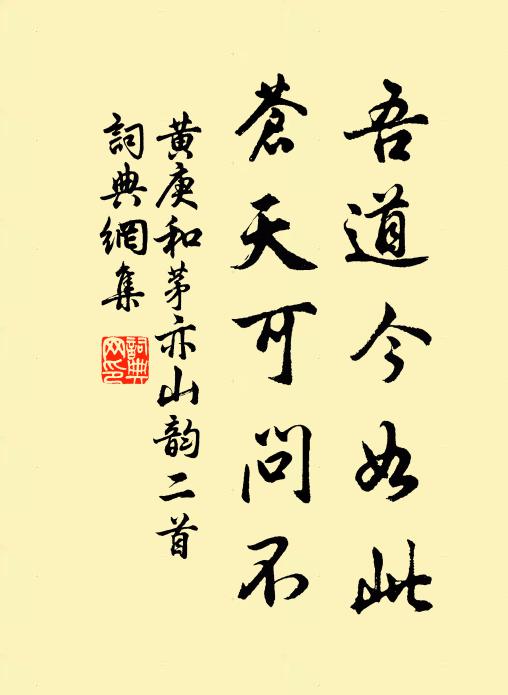 吾道今如此
蒼天可問不
黃庚和茅亦山韵二首
詞典網集
詞典網印